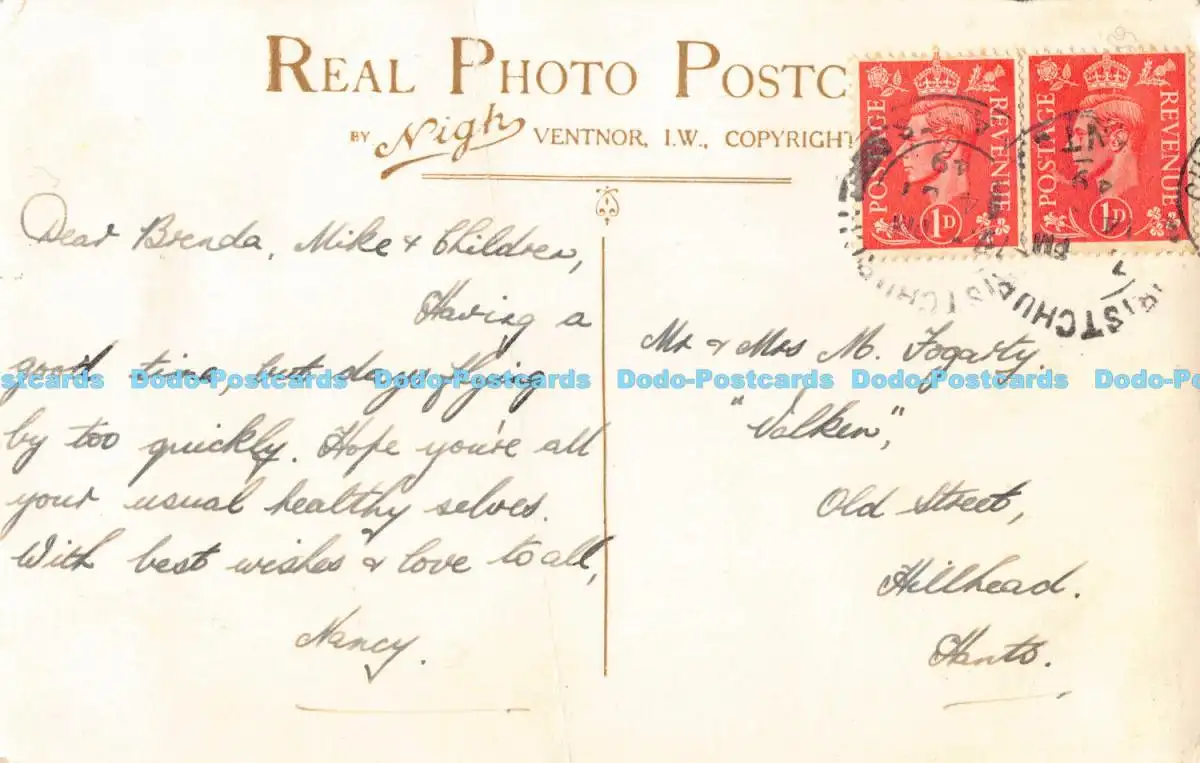 REAL PHOTO POSTC
BY Nigh VENTNOR, I.W., COPYRIGHT
POSTAGE REVENUE 1D
POSTAGE REVENUE 1D
Dear Brenda, Mike & Children,
Having a
good time, but days flying
by too quickly. Hope you're all
your usual healthy selves.
With best wishes & love to all,
Nancy.
Mr & Mrs M. Fogarty.
"Valken",
Old Street,
Hillhead.
Hants.
stcards Dodo-Postcards Dodo-Postcards Dodo-Postcards Dodo-Postcards Dodo-Pos